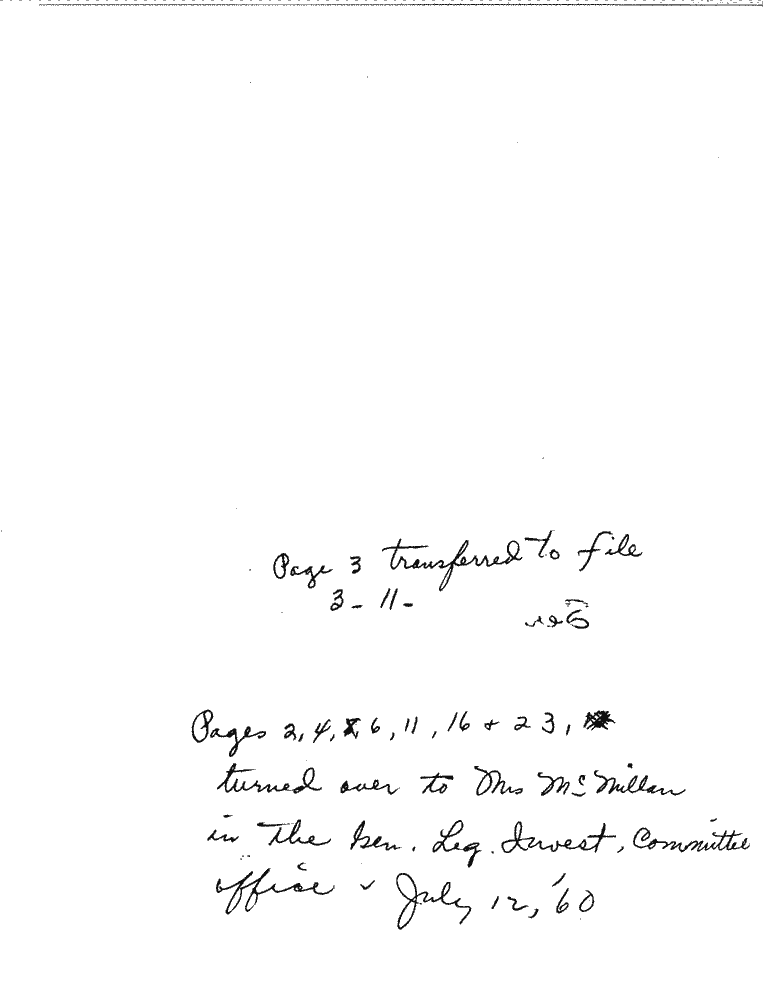 Page 3 transferred to file
3 - 11 -
Pages 2, 4, 6, 11, 16 + 23,
turned over to Mrs McMillan
in the Gen. Leg. Invest. Committee
office July 12, '60